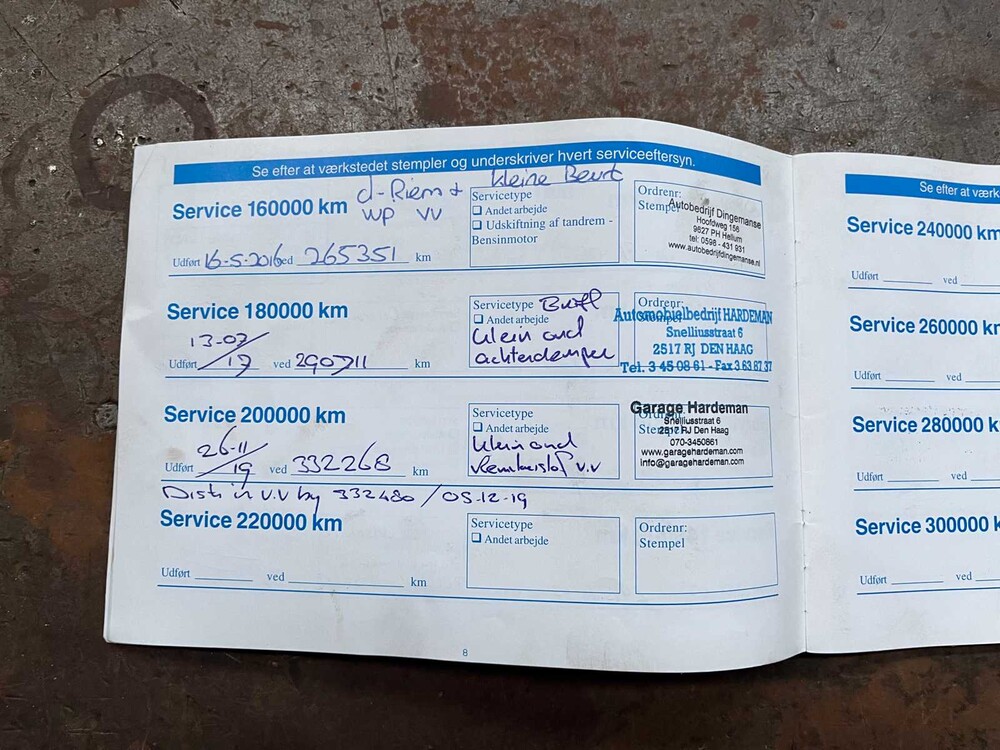 Se efter at værkstedet stempler og underskriver hvert serviceeftersyn.
Service 160000 km
d-Riem + kleine Beurt
WP VV
Servicetype
Andet arbejde
Udskiftning af tandrem -
Bensinmotor
Ordrenr:
Stempel
Autobedrijf Dingemanse
Hoofdweg 156
9627 PH Hellum
tel: 0598 - 431 931
www.autobedrijfdingemanse.nl
Udført 16-5-2016 ved 265351 km
Service 180000 km
Servicetype
Andet arbejde
Klein ond
achterdemper
Ordrenr:
Automobielbedrijf HARDEMAN
Snelliusstraat 6
2517 RJ DEN HAAG
Tel. 3 45 08 61 - Fax 3.63.87.37
13-07/
Udført 17 ved 290711 km
Service 200000 km
Servicetype
Andet arbejde
Klein ond
Remvloeistof v.v
Ordrenr:
Stempel
Garage Hardeman
Snelliusstraat 6
2517 RJ Den Haag
070-3450861
www.garagehardeman.com
info@garagehardeman.com
26-11/
Udført 19 ved 332268 km
Distr in v.v by 332480 / 05-12-19
Service 220000 km
Servicetype
Andet arbejde
Ordrenr:
Stempel
Udført ved km
8
Se efter at værk
Service 240000 km
Udført ved
Service 260000 k
Udført ved
Service 280000 k
Udført ved
Service 300000 k
Udført ved